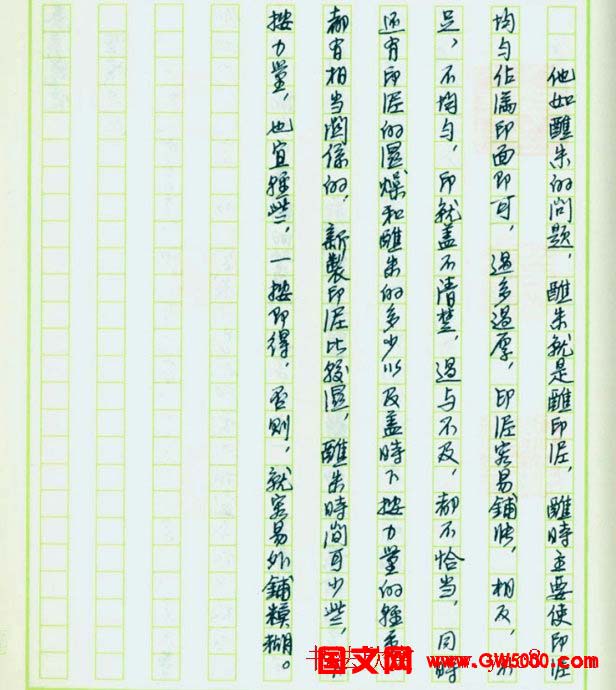 他如醮朱的问题，醮朱就是醮印泥，醮時主要使印泥
均匀佔满印面即可，過多過厚，印泥容易鋪肤，相反，不
足，不均匀，印就盖不清楚，過与不及，都不恰当，同時
还有印泥的濕燥和醮朱的多少以及盖時下按力量的輕重
都有相当関係的，新製印泥比較濕，醮朱時间可少些，
按力量，也宜輕些，一按即得，否则，就容易外鋪糢糊。
国文网 www.GW5000.com